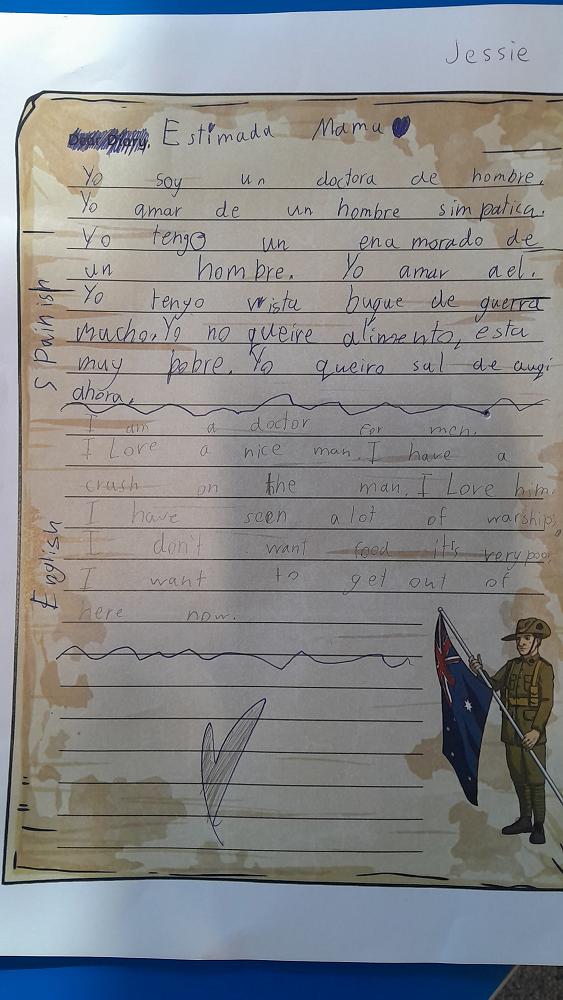 Jessie
Dear Diary, Estimada Mama
Yo soy un doctora de hombre.
Yo amar de un hombre simpatica.
Yo tengo un enamorado de
un hombre. Yo amar ael.
Yo tengo vista buque de guerra
mucho. Yo no queire alimento, esta
muy pobre. Yo queiro sal de auqi
ahora.
I am a doctor for men.
I Love a nice man. I have a
crush on the man. I Love him.
I have seen alot of warships,
I don't want food it's very poo
I want to get out of
here now.
Spainish
English